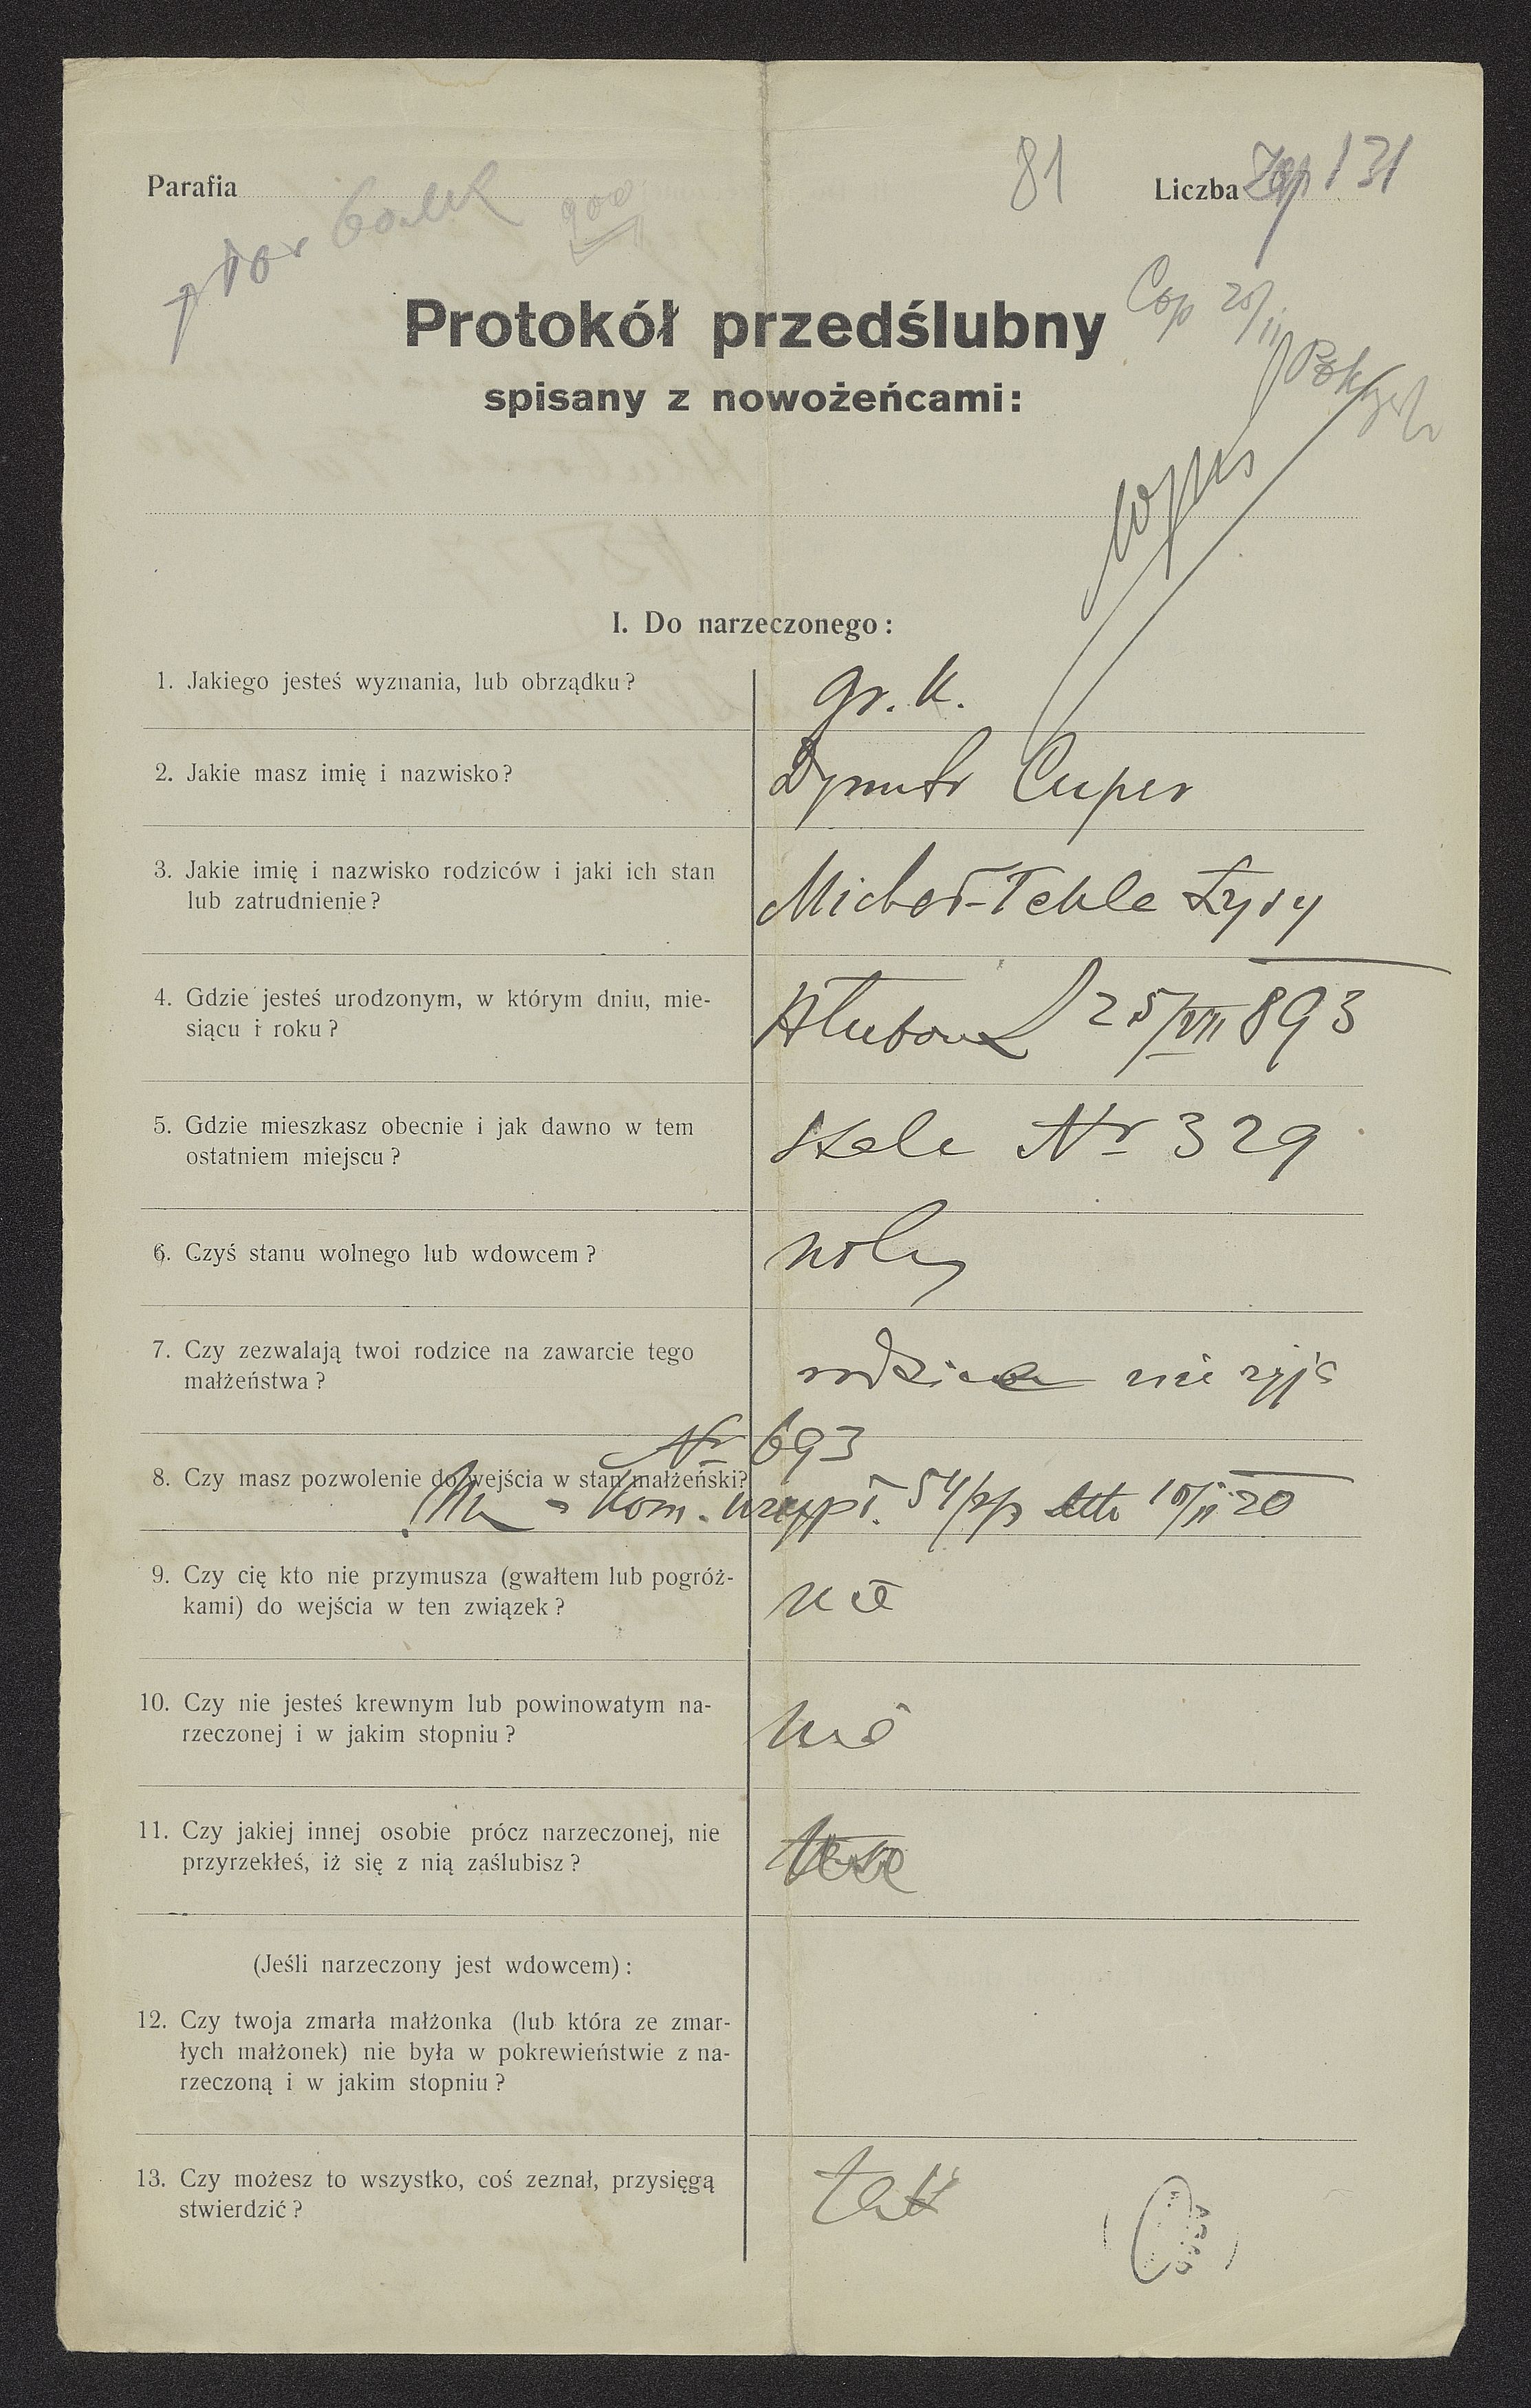 Parafia
81
Liczba Zap 131
900
Cop 20/II
Protokół przedślubny
spisany z nowożeńcami:
I. Do narzeczonego:
1. Jakiego jesteś wyznania, lub obrządku?
gr. k.
2. Jakie masz imię i nazwisko?
Dymitr Cuper
3. Jakie imię i nazwisko rodziców i jaki ich stan
lub zatrudnienie?
Michał - Tekla Łysy
4. Gdzie jesteś urodzonym, w którym dniu, mie-
siącu i roku?
25/VII 893
5. Gdzie mieszkasz obecnie i jak dawno w tem
ostatniem miejscu?
Nr 329
6. Czyś stanu wolnego lub wdowcem?
wolny
7. Czy zezwalają twoi rodzice na zawarcie tego
małżeństwa?
rodzice nie żyją
Nr 693
8. Czy masz pozwolenie do wejścia w stan małżeński?
Kom. 54/pp dtto 10/II 20
9. Czy cię kto nie przymusza (gwałtem lub pogróż-
kami) do wejścia w ten związek?
nie
10. Czy nie jesteś krewnym lub powinowatym na-
rzeczonej i w jakim stopniu?
nie
11. Czy jakiej innej osobie prócz narzeczonej, nie
przyrzekłeś, iż się z nią zaślubisz?
(Jeśli narzeczony jest wdowcem):
12. Czy twoja zmarła małżonka (lub która ze zmar-
łych małżonek) nie była w pokrewieństwie z na-
rzeczoną i w jakim stopniu?
13. Czy możesz to wszystko, coś zeznał, przysięgą
stwierdzić?
tak